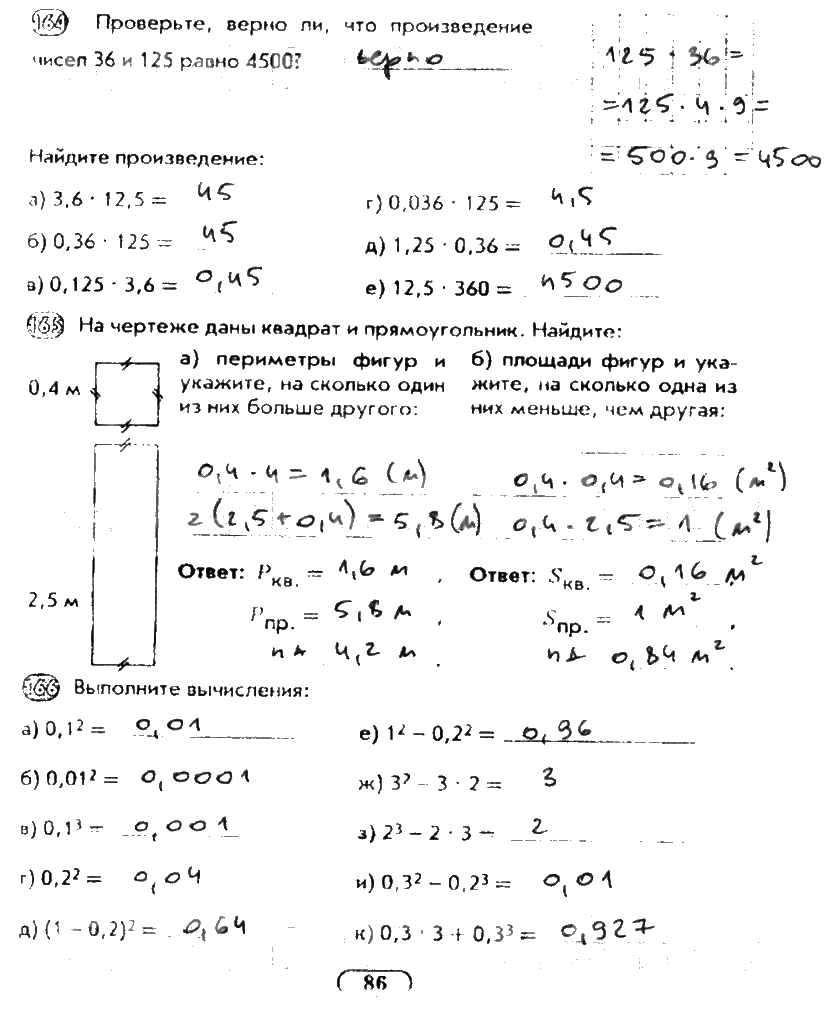 164 Проверьте, верно ли, что произведение
чисел 36 и 125 равно 4500? верно
125 · 36 =
= 125 · 4 · 9 =
= 500 · 9 = 4500
Найдите произведение:
а) 3,6 · 12,5 = 45
г) 0,036 · 125 = 4,5
б) 0,36 · 125 = 45
д) 1,25 · 0,36 = 0,45
в) 0,125 · 3,6 = 0,45
е) 12,5 · 360 = 4500
165 На чертеже даны квадрат и прямоугольник. Найдите:
0,4 м
2,5 м
а) периметры фигур и
укажите, на сколько один
из них больше другого:
0,4 · 4 = 1,6 (м)
2(2,5 + 0,4) = 5,8 (м)
Ответ: Pкв. = 1,6 м ,
Pпр. = 5,8 м ,
на 4,2 м .
б) площади фигур и ука-
жите, на сколько одна из
них меньше, чем другая:
0,4 · 0,4 = 0,16 (м²)
0,4 · 2,5 = 1 (м²)
Ответ: Sкв. = 0,16 м²
Sпр. = 1 м² ,
на 0,84 м² .
166 Выполните вычисления:
а) 0,1² = 0,01
е) 1² – 0,2² = 0,96
б) 0,01² = 0,0001
ж) 3² – 3 · 2 = 3
в) 0,1³ = 0,001
з) 2³ – 2 · 3 = 2
г) 0,2² = 0,04
и) 0,3² – 0,2³ = 0,01
д) (1 – 0,2)² = 0,64
к) 0,3 · 3 + 0,3³ = 0,927
86